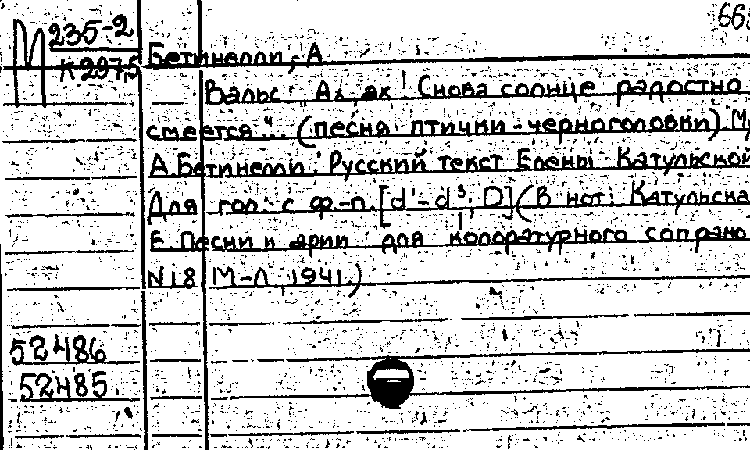 М 235-2
К 2975
668
Бетинелли, А
Вальс "Ах, ах! Снова солнце радостно
смеется"... (песня птички-черноголовки) М
А. Бетинелли. Русский текст Елены Катульской
Для гол. с ф.-п. [d'-d³; D] (В нот: Катульска
Е. Песни и арии для колоратурного сопрано
N 18 М-Л, 1941.)
52486
52485.